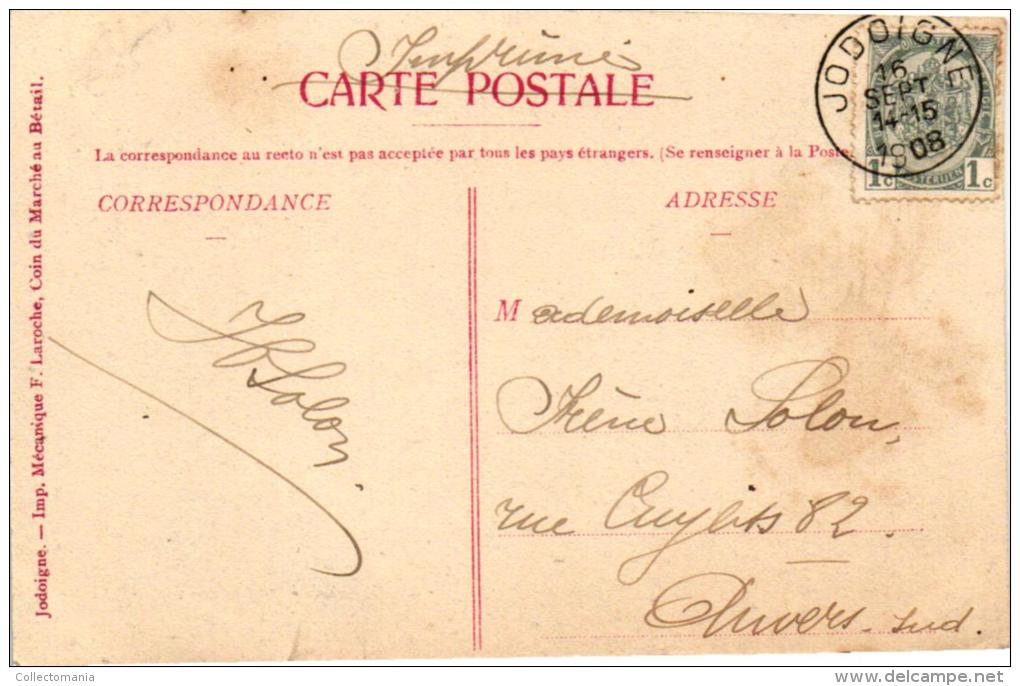 Imprimé
CARTE POSTALE
La correspondance au recto n'est pas acceptée par tous les pays étrangers. (Se renseigner à la Poste.
CORRESPONDANCE
ADRESSE
JODOIGNE
16
SEPT
14-15
1908
1c 1c
Solon
Mademoiselle
Irène Solon,
rue Cuylits 82
Anvers-sud.
Jodoigne. — Imp. Mécanique F. Laroche, Coin du Marché au Bétail.
Collectomania
delcampe.net